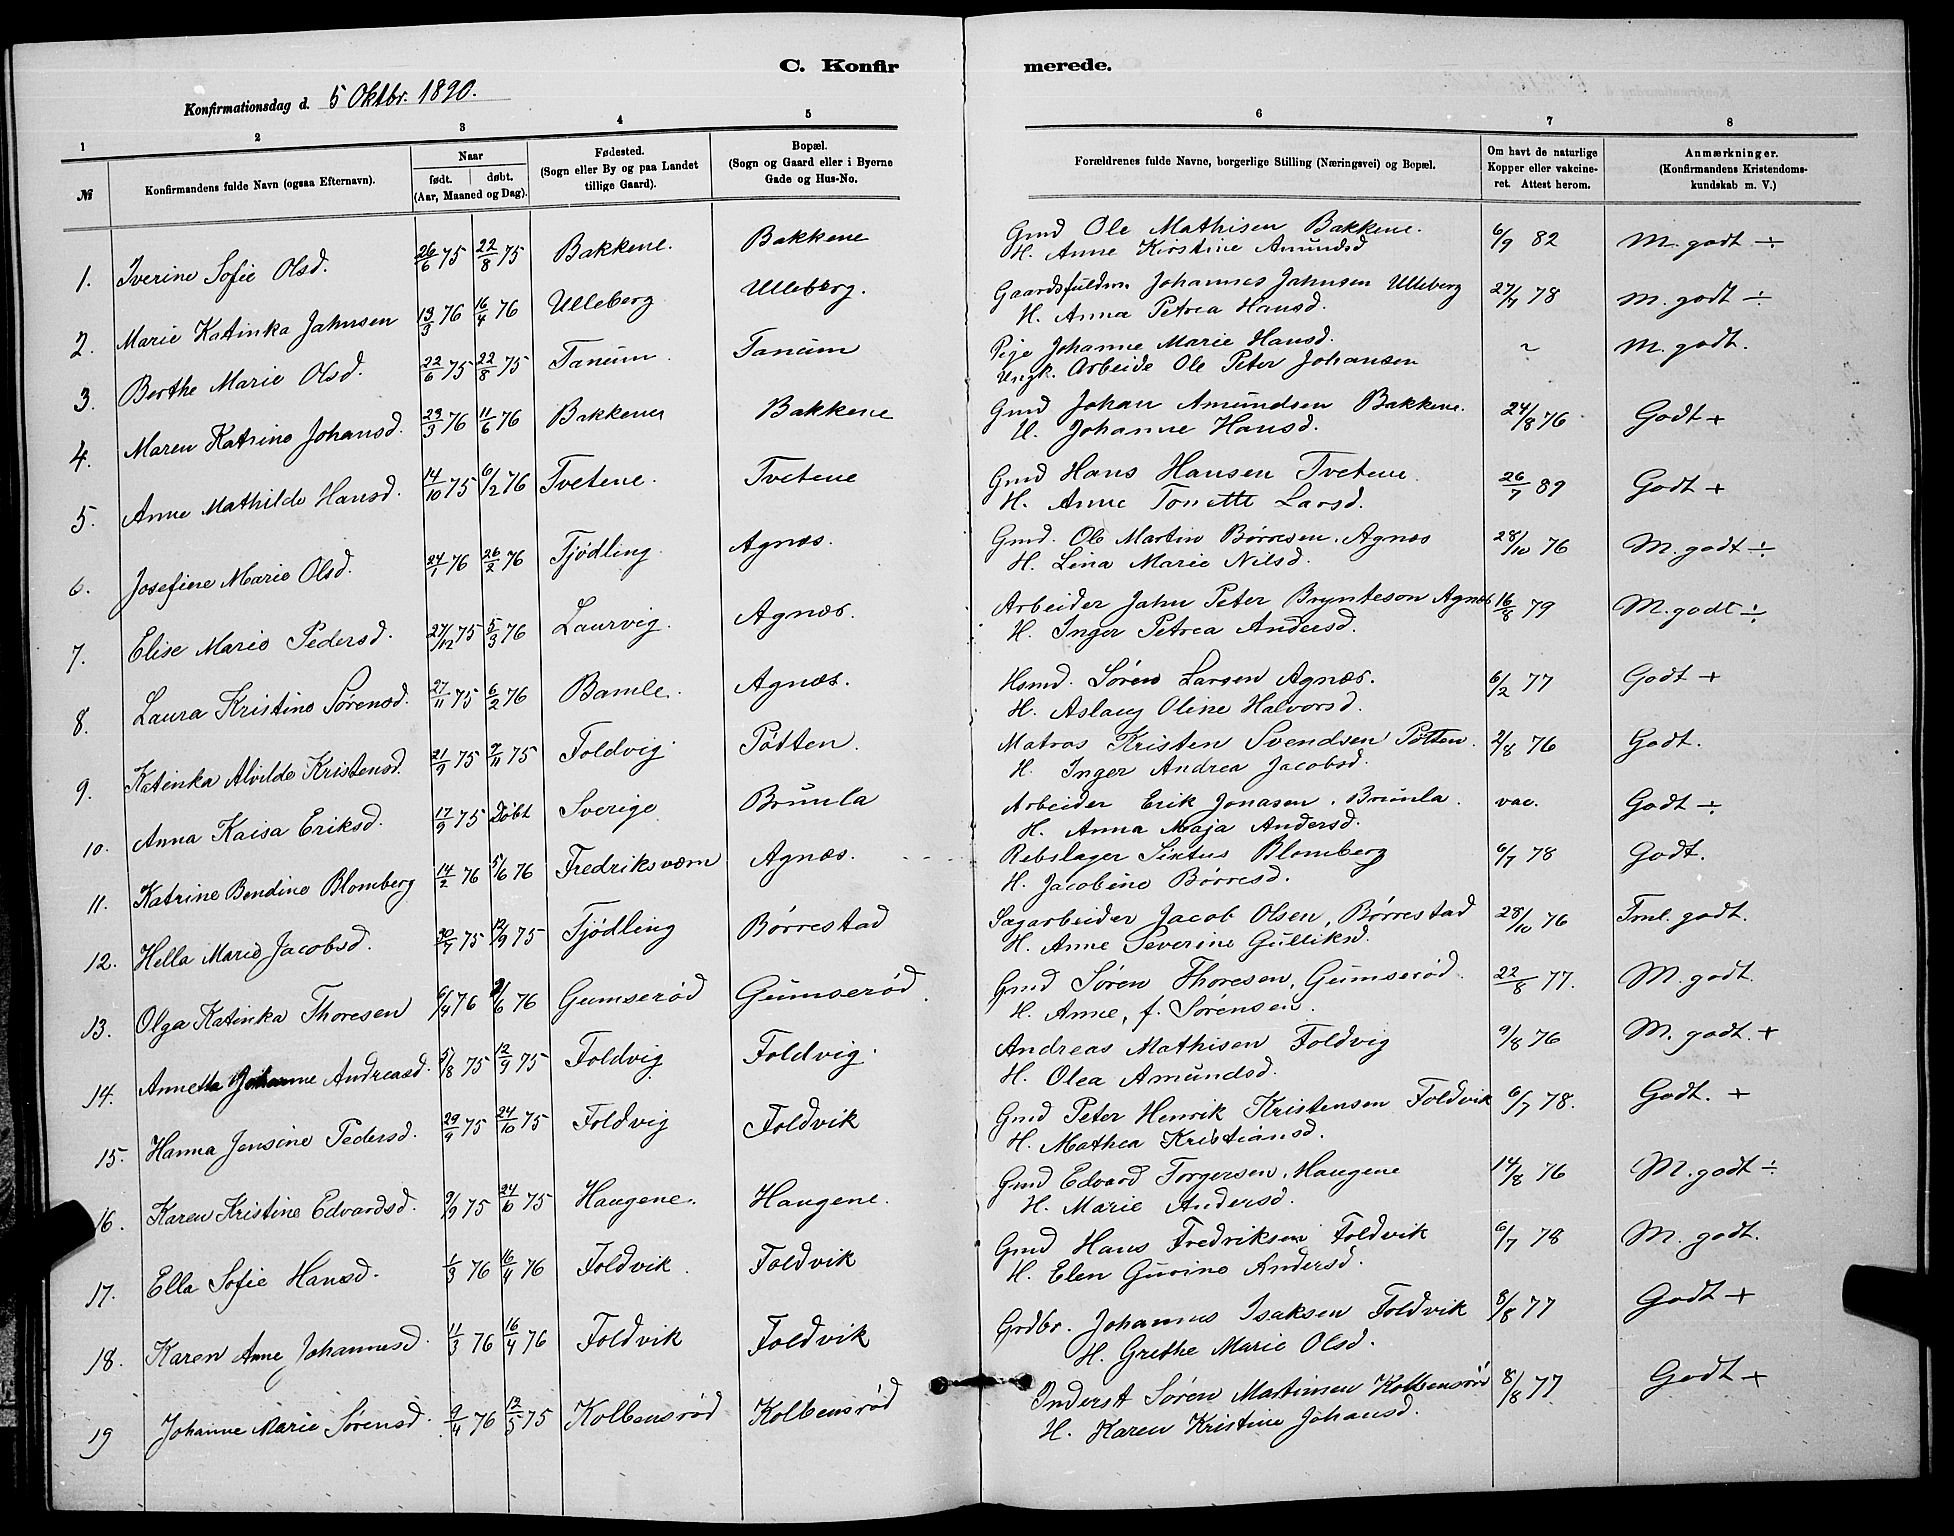 C. Konfirmerede.
Konfirmationsdag d. 5 Oktbr. 1890.
1 2 3 4 5 6 7 8
№ Konfirmandens fulde Navn (ogsaa Efternavn). Naar født. døbt. (Aar, Maaned og Dag). Fødested. (Sogn eller By og paa Landet tillige Gaard). Bopæl. (Sogn og Gaard eller i Byerne Gade og Hus-No. Forældrenes fulde Navne, borgerlige Stilling (Næringsvei) og Bopæl. Om havt de naturlige Kopper eller vakcineret. Attest herom. Anmærkninger. (Konfirmandens Kristendomskundskab m. V.)
1. Iverine Sofie Olsd. 26/6 75 22/8 75 Bakkene. Bakkene Gmd Ole Mathisen Bakkene. 6/9 82 M. godt ÷
H. Anne Kirstine Amundsd
2. Marie Katinka Jahnsen 13/3 76 16/4 76 Ulleberg Ulleberg. Gaardsfuldm. Johannes Jahnsen Ulleberg 27/7 78 M. godt ÷
H. Anna Petrea Hansd.
3. Berthe Marie Olsd. 22/6 75 22/8 75 Tanum. Tanum Pige Johanne Marie Hansd. ~ M. godt.
Ungk. Arbeide Ole Peter Johansen
4. Maren Katrine Johansd. 23/3 76 11/6 76 Bakkene Bakkene Gmd Johan Amundsen Bakkene. 24/8 76 Godt +
H. Johanne Hansd.
5. Anne Mathilde Hansd. 14/10 75 6/2 76 Tvetene. Tvetene Gmd Hans Hansen Tvetene. 26/7 89 Godt +
H. Anne Tonette Larsd.
6. Josefine Marie Olsd. 24/1 76 26/2 76 Tjødling. Agnæs. Gmd. Ole Martin Børresen. Agnæs 28/10 76 M. godt ÷
H. Lina Marie Nilsd.
7. Elise Marie Pedersd. 27/12 75 5/3 76 Laurvig. Agnæs. Arbeider Jahn Peter Brynteson Agnæs 16/8 79 M. godt ÷
H. Inger Petrea Andersd.
8. Laura Kristine Sørensd. 27/11 75 6/2 76 Bamle. Agnæs. Hsmd. Søren Larsen Agnæs. 6/2 77 Godt +
H. Aslaug Oline Halvorsd.
9. Katinka Alvilde Kristensd. 21/9 75 7/11 75 Foldvig. Pøtten. Matros Kristen Svendsen Pøtten. 2/8 76 Godt.
H. Inger Andrea Jacobsd.
10. Anna Kaisa Eriksd. 17/9 75 Døbt Sverige Brunla Arbeider Erik Jonasen. Brunla. vac. Godt ÷
H. Anna Maja Andersd.
11. Katrine Bendine Blomberg 14/2 76 5/6 76 Fredriksværn Agnæs. Rebslager Sixtus Blomberg 6/7 78 Godt.
H. Jacobine Børresd.
12. Hella Marie Jacobsd. 30/7 75 12/9 75 Tjødling Børrestad Sagarbeider Jacob Olsen, Børrestad 28/10 76 Tml. godt.
H. Anne Severine Gulliksd.
13. Olga Katinka Thoresen 6/4 76 2/6 76 Gumserød Gumserød. Gmd Søren Thoresen, Gumserød. 22/8 77. M. godt.
H. Anne, f. Sørensen.
14. Annette Johanne Andreasd. 5/8 75 12/9 75 Foldvig Foldvig. Andreas Mathisen Foldvig 9/8 76 M. godt. +
H. Olea Amundsd.
15. Hanna Jensine Pedersd. 29/9 75 24/10 75 Foldvig Foldvik Gmd Peter Henrik Kristensen Foldvik 6/7 78. Godt. +
H. Mathea Kristiansd.
16. Karen Kristine Edvardsd. 9/9 75 24/10 75 Haugene. Haugene. Gmd Edvard Torgersen. Haugene 14/8 76 M. godt ÷
H. Marie Andersd.
17. Ella Sofie Hansd. 1/3 76 16/4 76 Foldvik. Foldvik Gmd Hans Fredriksen Foldvik 6/7 78 M. godt.
H. Elen Gurine Andersd.
18. Karen Anne Johannesd. 11/3 76 16/4 76 Foldvik Foldvik Grdbr. Johannes Isaksen Foldvik 8/8 77 Godt +
H. Grethe Marie Olsd.
19 Johanne Marie Sørensd. 9/4 76 12/5 75 Kolbensrød Kolbensrød Inderst Søren Martinsen Kolbensrød 8/8 77. Godt +
H. Karen Kristine Johansd.